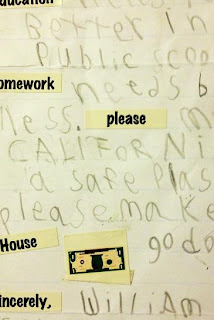 ducation
Better in
Public scoo
omework
needs b
ness. please m
CALIFORNi
a safe Plas
please make
House
go do
incerely, William